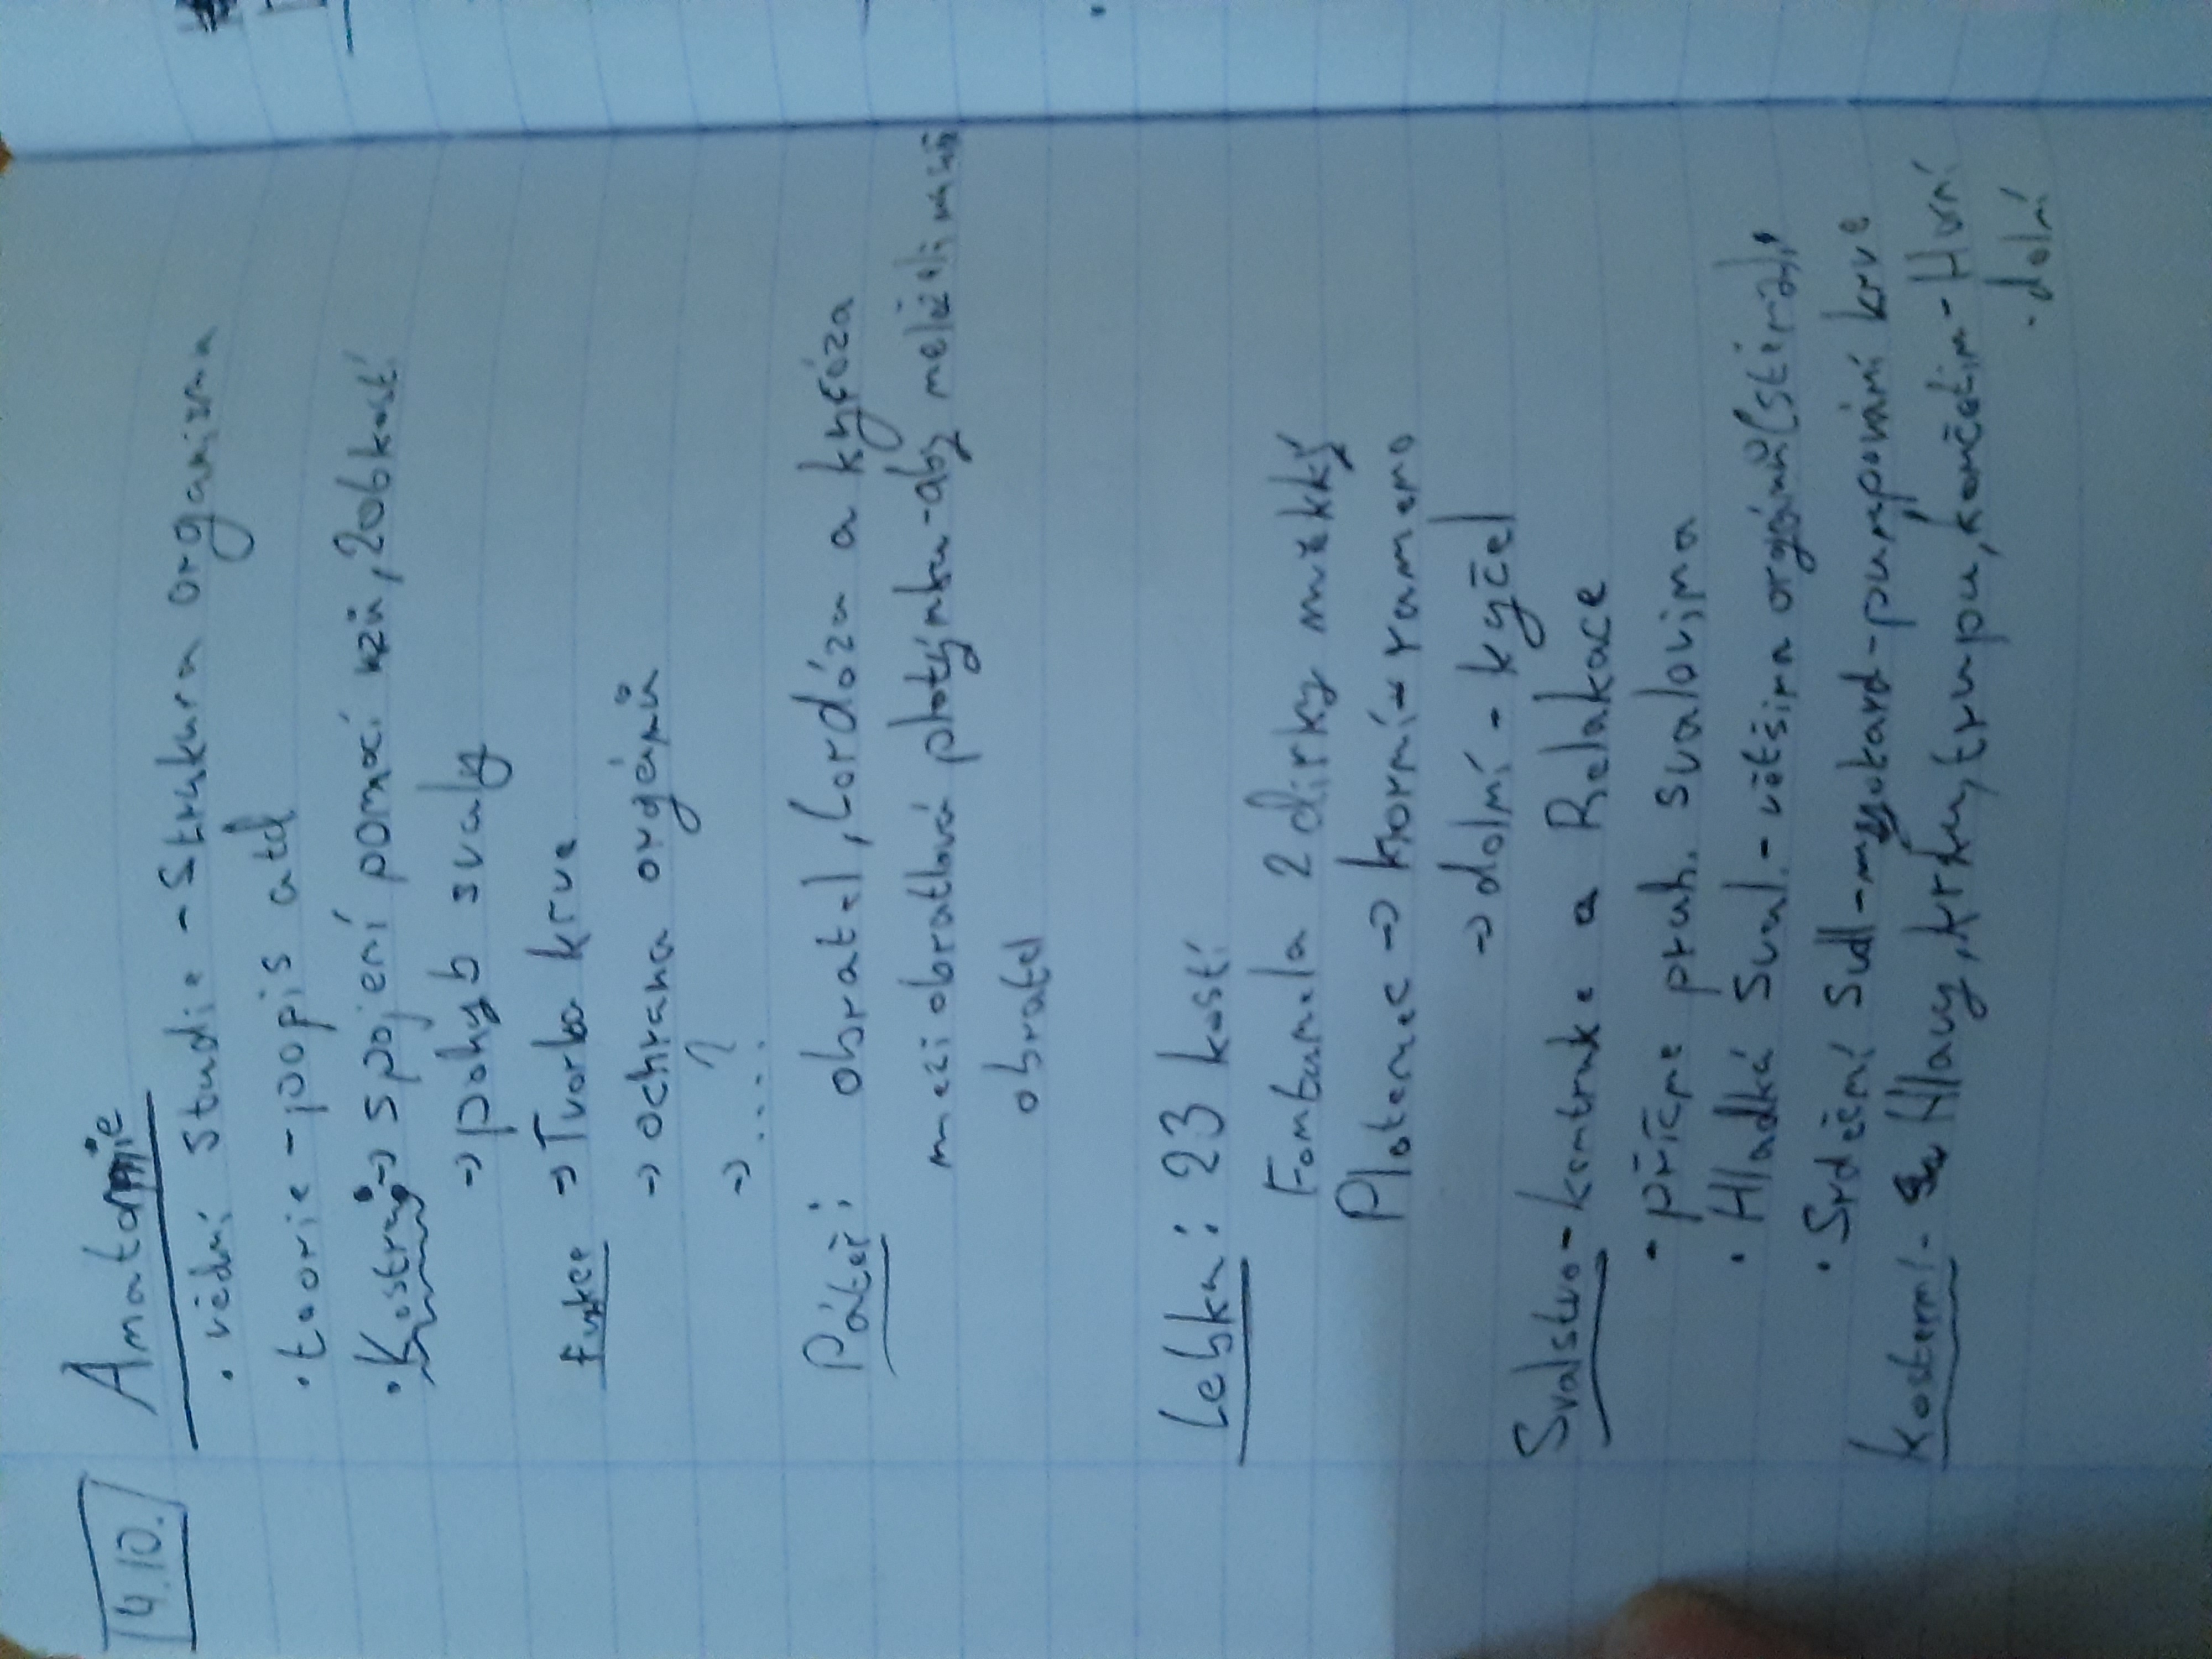 4.10. Anatomie
• vědní studie - Strukura organizma
• teorie - popis atd
• Kostra → spojení pomocí vzů, 206 kostí
→ pohyb svaly
Funkce → Tvorba krve
→ ochrana orgánů
→ ...?
Páteř: obratel, Lordóza a kyfóza
mezi obratlová plotýnka - aby neleželi na
obratel
Lebka: 23 kostí
Fontanela 2 dírky měkký
Pletenec → horní - rameno
→ dolní - kyčel
Svalstvo - kontrakce a Relakace
• příčně pruh. svalovina
• Hladká Sval. - většina orgánů (stěna)
• Srdeční Sval - myokard - pumpování krve
kosterní - Hlavy, krku, trupu, končetin - Horní
• dolní